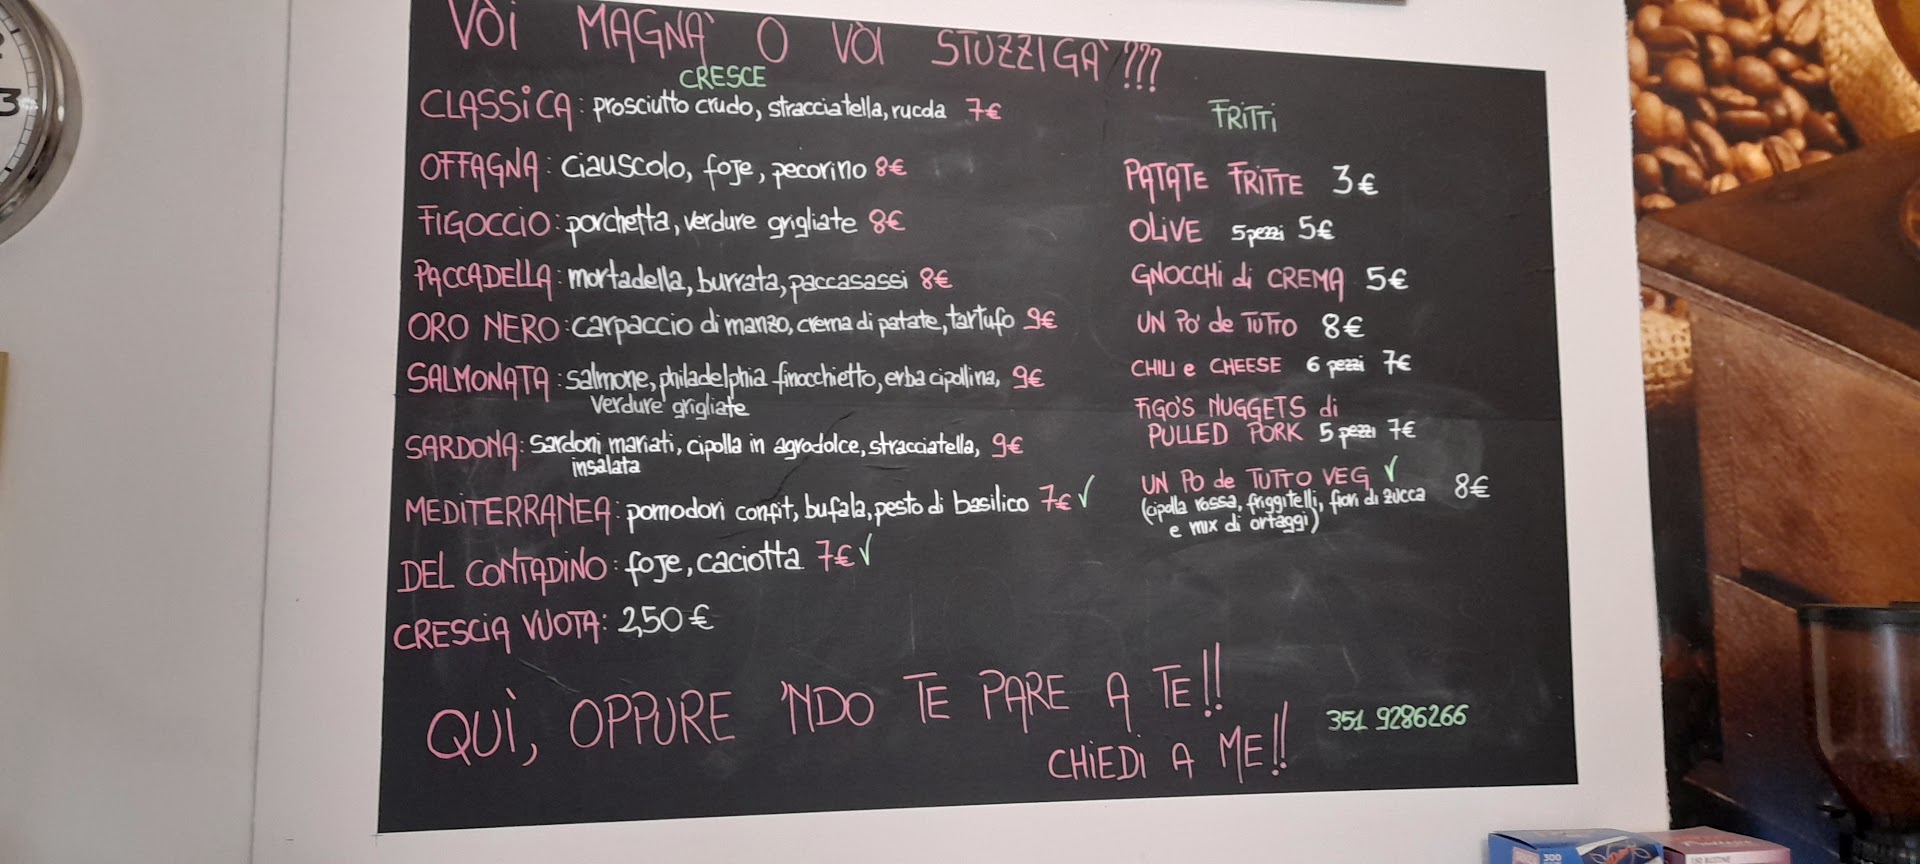 VÒI MAGNA' O VÒI STUZZIGA'???
CRESCE
CLASSICA: prosciutto crudo, stracciatella, rucola 7€
OFFAGNA: ciauscolo, foje, pecorino 8€
FIGOCCIO: porchetta, verdure grigliate 8€
PACCADELLA: mortadella, burrata, paccasassi 8€
ORO NERO: carpaccio di manzo, crema di patate, tartufo 9€
SALMONATA: salmone, philadelphia finocchietto, erba cipollina, 9€
verdure grigliate
SARDONA: sardoni mariati, cipolla in agrodolce, stracciatella, 9€
insalata
MEDITERRANEA: pomodori confit, bufala, pesto di basilico 7€ ✓
DEL CONTADINO: foje, caciotta 7€ ✓
CRESCIA VUOTA: 2,50 €
FRITTI
PATATE FRITTE 3€
OLIVE 5 pezzi 5€
GNOCCHI di CREMA 5€
UN PO' de TUTTO 8€
CHILI e CHEESE 6 pezzi 7€
FIGO'S NUGGETS di
PULLED PORK 5 pezzi 7€
UN PO de TUTTO VEG ✓
(cipolla rossa, friggitelli, fiori di zucca 8€
e mix di ortaggi)
QUÌ, OPPURE 'NDO TE PARE A TE!!
CHIEDI A ME!!
351 9286266
3
300